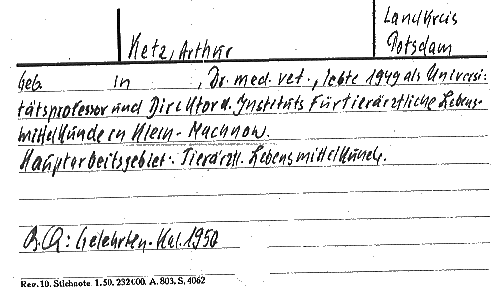 Landkreis
Potsdam
Ketz, Arthur
Geb. in , Dr. med. vet., lebte 1949 als Universi-
tätsprofessor und Direktor d. Instituts für tierärztliche Lebens-
mittelkunde in Klein-Machnow.
Hauptarbeitsgebiet: Tierärztl. Lebensmittelkunde.
B.Q: Gelehrten-Kal. 1950
Reg. 10. Stichnote. 1. 50. 232000. A. 803. S. 4062